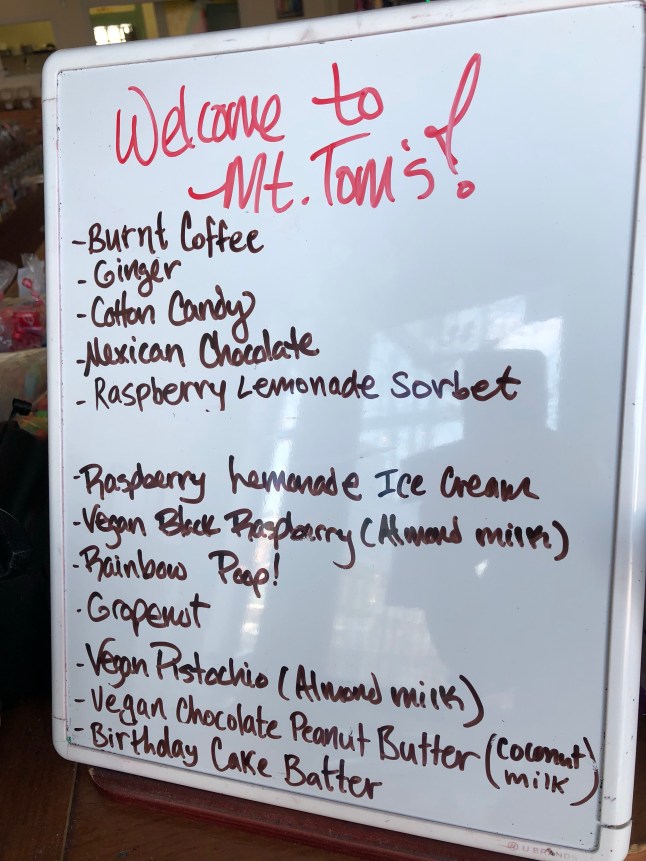 Welcome to
Mt. Tom's!
- Burnt Coffee
- Ginger
- Cotton Candy
- Mexican Chocolate
- Raspberry Lemonade Sorbet
- Raspberry Lemonade Ice Cream
- Vegan Black Raspberry (Almond milk)
- Rainbow Poop!
- Grapenut
- Vegan Pistachio (Almond milk)
- Vegan Chocolate Peanut Butter (coconut milk)
- Birthday Cake Batter
U BRANDS